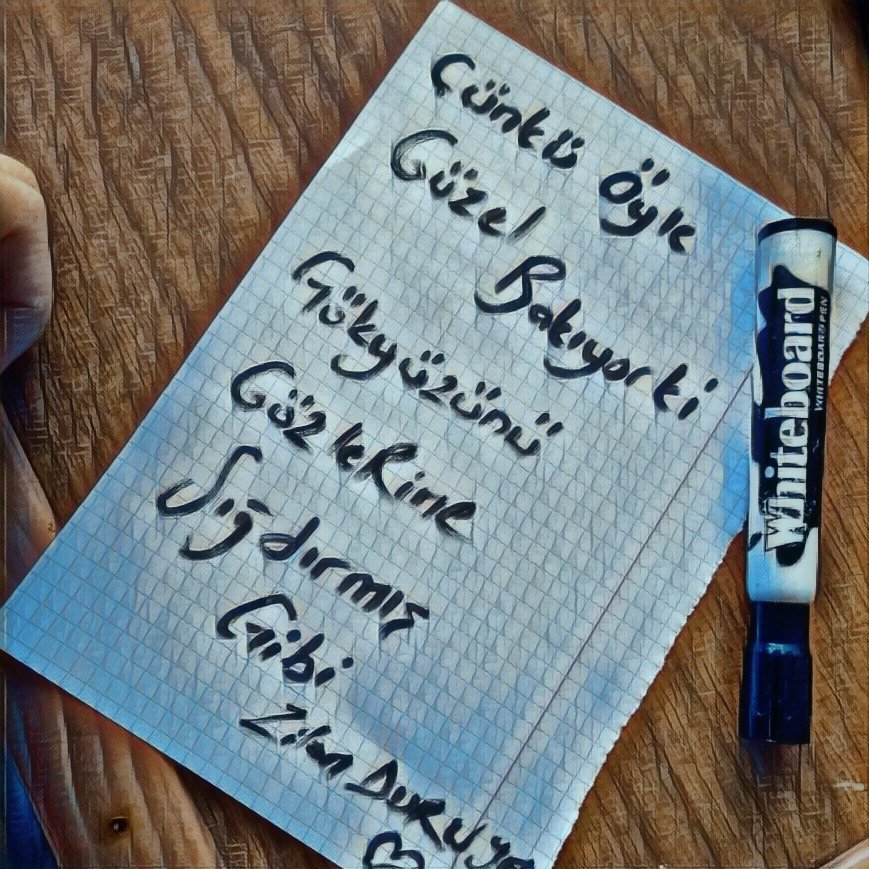 Çünkü Öyle
Güzel Bakıyorki
Gökyüzünü
Gözlerine
Sığdırmış
Gibi
Zilan DURUye
Whiteboard
WHITEBOARD PEN